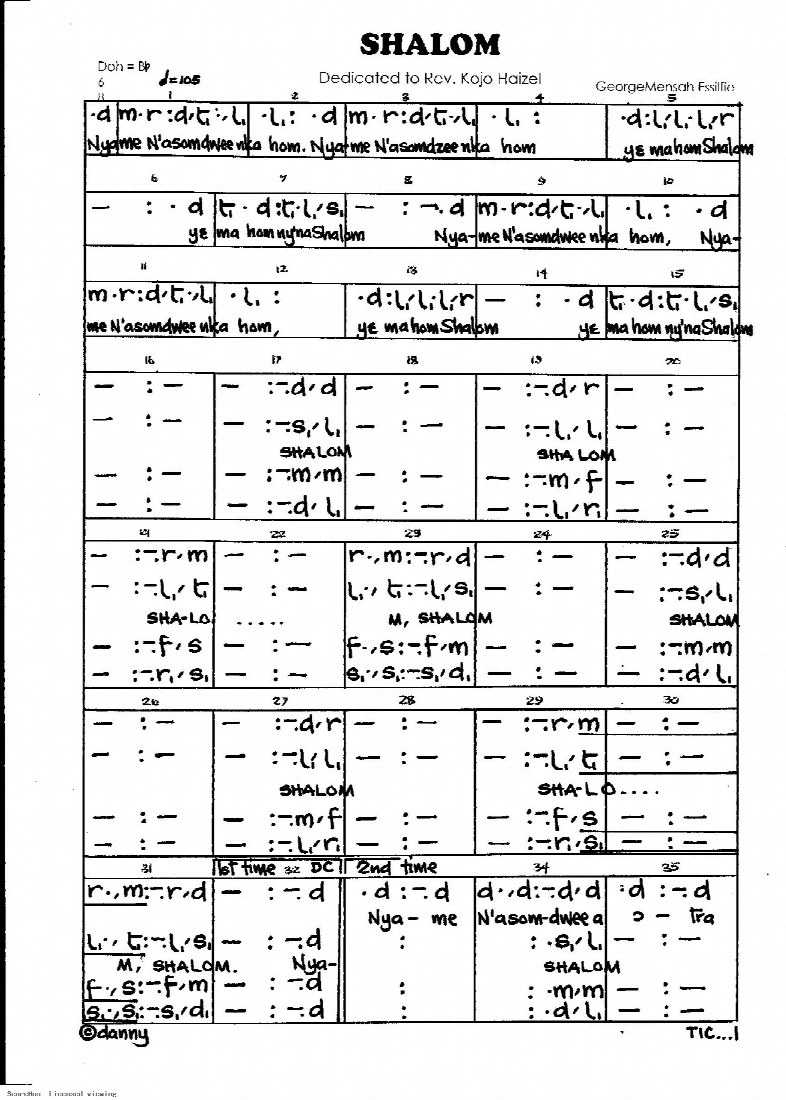 SHALOM
Doh = B♭
6
8
♩=105
Dedicated to Rev. Kojo Haizel
GeorgeMensah Essilfie
1 2 3 4 5
·d|m·r:d,t,·,l,|·l,: ·d|m·r:d,t,·,l,|·l, :|·d:l,l,l,r
Nya-me N'asomdwee nka hom. Nya-me N'asomdzee nka hom yɛ ma hom Shalom
6 7 8 9 10
— : ·d|t,·d:t,·l,s,|— : -·d|m·r:d,t,·,l,|·l,: ·d
yɛ ma hom ny'na Shalom Nya-me N'asomdwee nka hom, Nya-
11 12 13 14 15
m·r:d,t,·,l,|·l, :|·d:l,l,l,r|— : ·d|t,·d:t,·l,s,
me N'asomdwee nka hom, yɛ ma hom Shalom yɛ ma hom ny'na Shalom
16 17 18 19 20
— : —|— :-·d,d|— : —|— :-·d,r|— : —
— : —|— :-·s,l,|— : —|— :-·l,l,|— : —
SHALOM SHALOM
— : —|— :-·m,m|— : —|— :-·m,f|— : —
— : —|— :-·d,l,|— : —|— :-·l,r,|— : —
21 22 23 24 25
— :-·r,m|— : —|r·,m:-·r,d|— : —|— :-·d,d
— :-·l,t,|— : —|l,·,t,:-·l,s,|— : —|— :-·s,l,
SHA-LO ..... M, SHALOM SHALOM
— :-·f,s|— : —|f·,s:-·f,m|— : —|— :-·m,m
— :-·r,s,|— : —|s,·,s,:-·s,d,|— : —|— :-·d,l,
26 27 28 29 30
— : —|— :-·d,r|— : —|— :-·r,m|— : —
— : —|— :-·l,l,|— : —|— :-·l,t,|— : —
SHALOM SHA-LO....
— : —|— :-·m,f|— : —|— :-·f,s|— : —
— : —|— :-·l,r,|— : —|— :-·r,s,|— : —
31 1st time 32 DC 2nd time 34 35
r·,m:-·r,d|— : -·d|·d :-·d|d·,d:-·d,d|:d :-·d
Nya- me N'asom-dwee a ɔ - tra
l,·,t,:-·l,s,|— : -·d|:|: ·s,l,|— : —
M, SHALOM. Nya- SHALOM
f·,s:-·f,m|— : -·d|:|: ·m,m|— : —
s,·,s,:-·s,d,|— : -·d|:|: ·d,l,|— : —
©danny
TIC...1